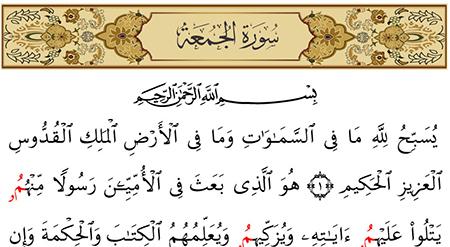 سُورَةُ الجُمُعَةِ
بِسْمِ اللَّهِ الرَّحْمَٰنِ الرَّحِيمِ
يُسَبِّحُ لِلَّهِ مَا فِى السَّمَٰوَٰتِ وَمَا فِى الْأَرْضِ الْمَلِكِ الْقُدُّوسِ
الْعَزِيزِ الْحَكِيمِ ١ هُوَ الَّذِى بَعَثَ فِى الْأُمِّيِّـۧنَ رَسُولًا مِّنْهُمُۥ
يَتْلُوا۟ عَلَيْهِمُۥ ءَايَٰتِهِۦ وَيُزَكِّيهِمُۥ وَيُعَلِّمُهُمُ الْكِتَٰبَ وَالْحِكْمَةَ وَإِن